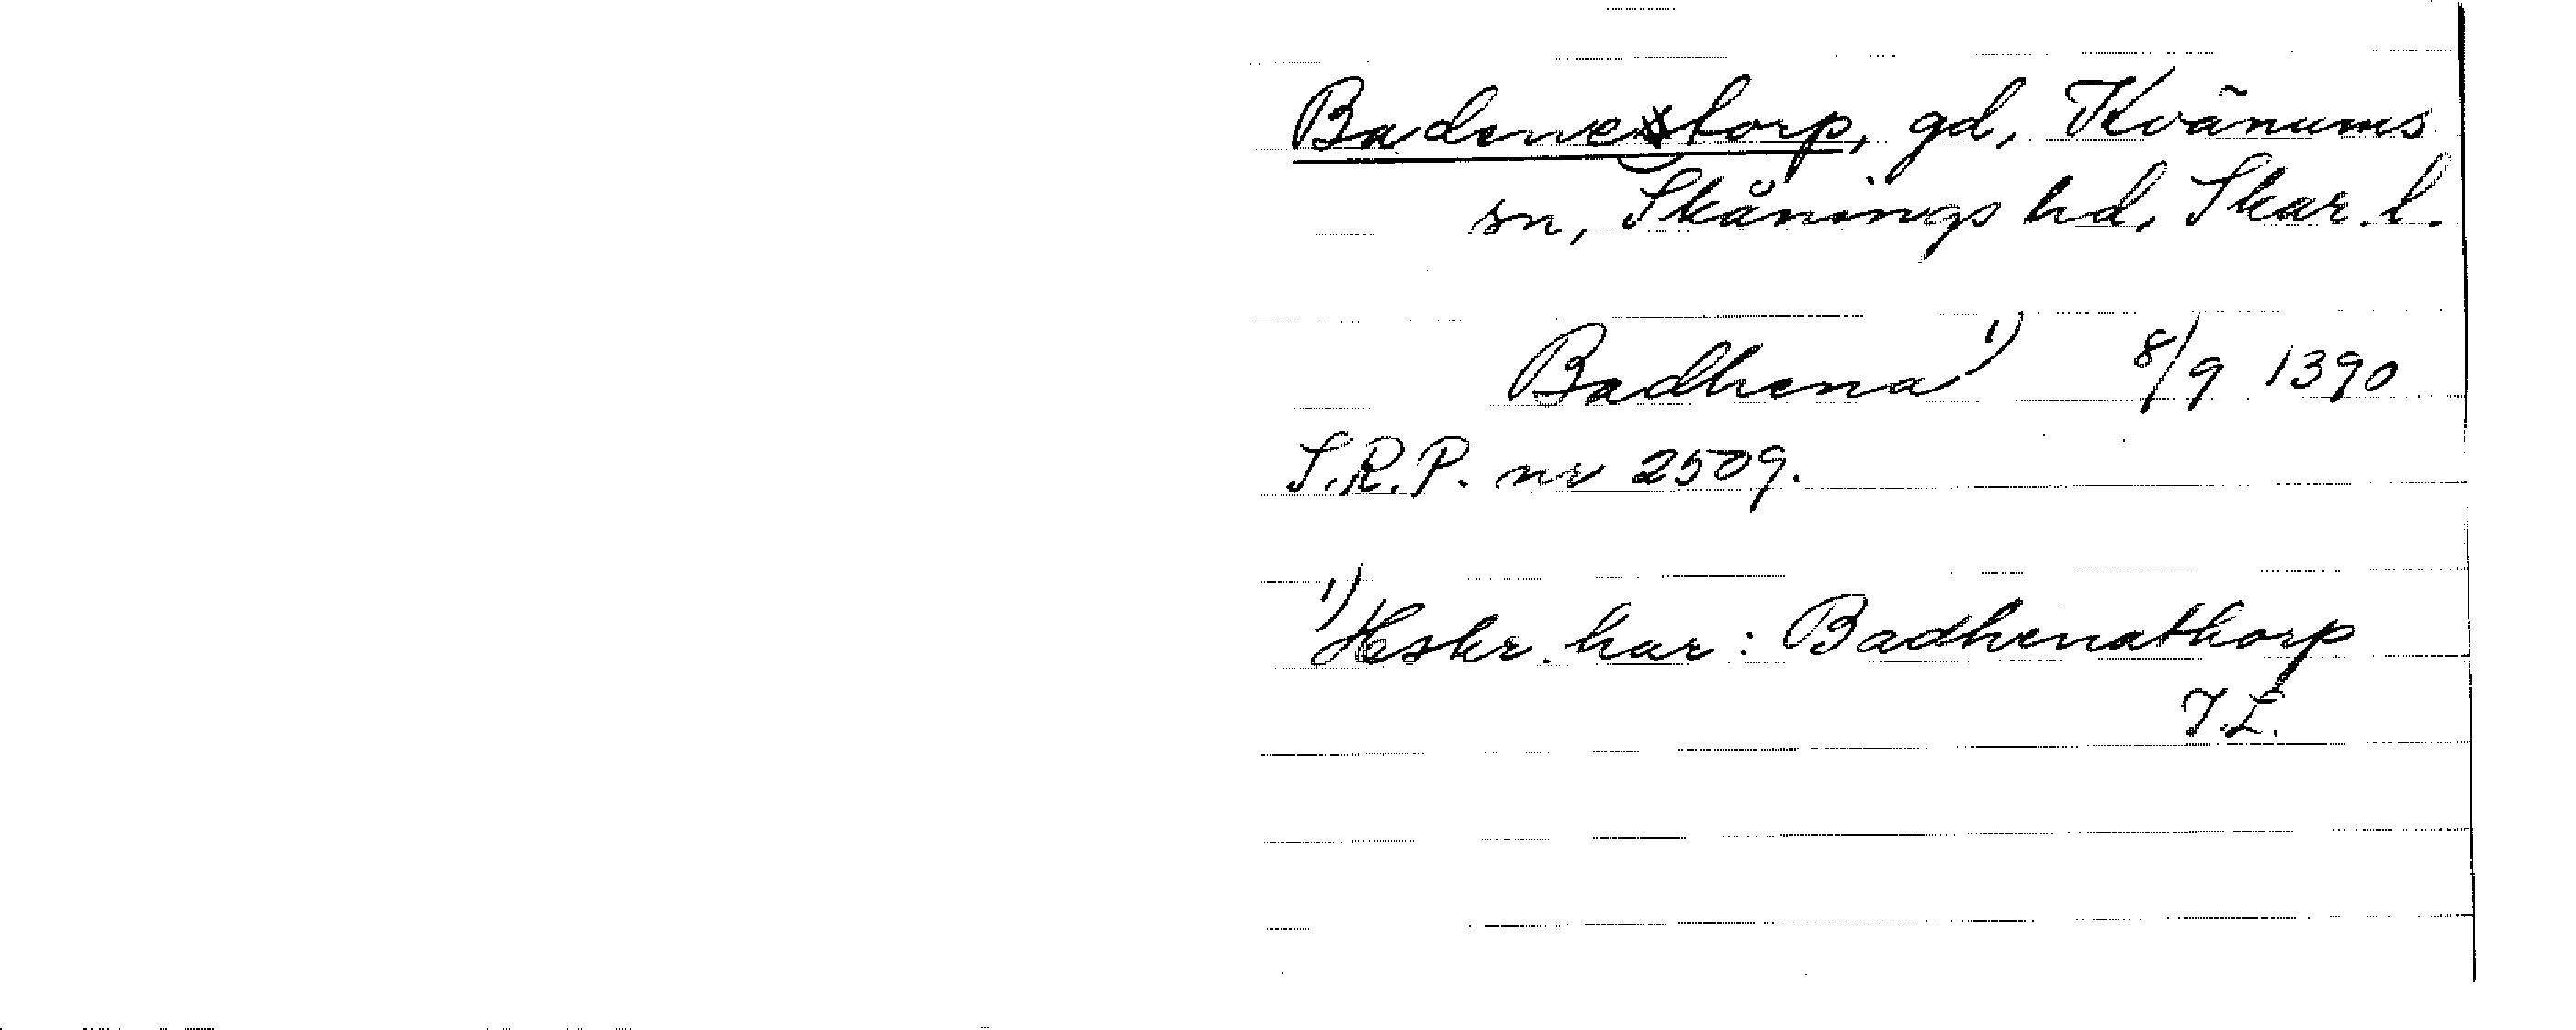 Badenetorp, gd, Kvänums
sn, Skånings hd, Skar. l.
Badhena 1) 8/9 1390
S.R.P. nr 2509.
1) Hskr. har: Badhenathorp
I.L.